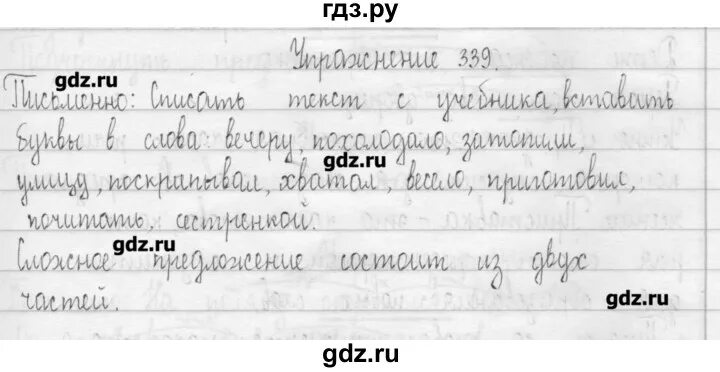 гдз.ру
Упражнение 339.
gdz.ru
Письменно: Списать текст с учебника, вставать
буквы в слова вечеру, похолодало, затопили,
gdz.ru
улицу, поскрапывал, хватал, весело, приготовил,
почитать, сестренкой.
gdz.ru
Сложное предложение состоит из двух
частей.
gdz.ru
gdz.ru